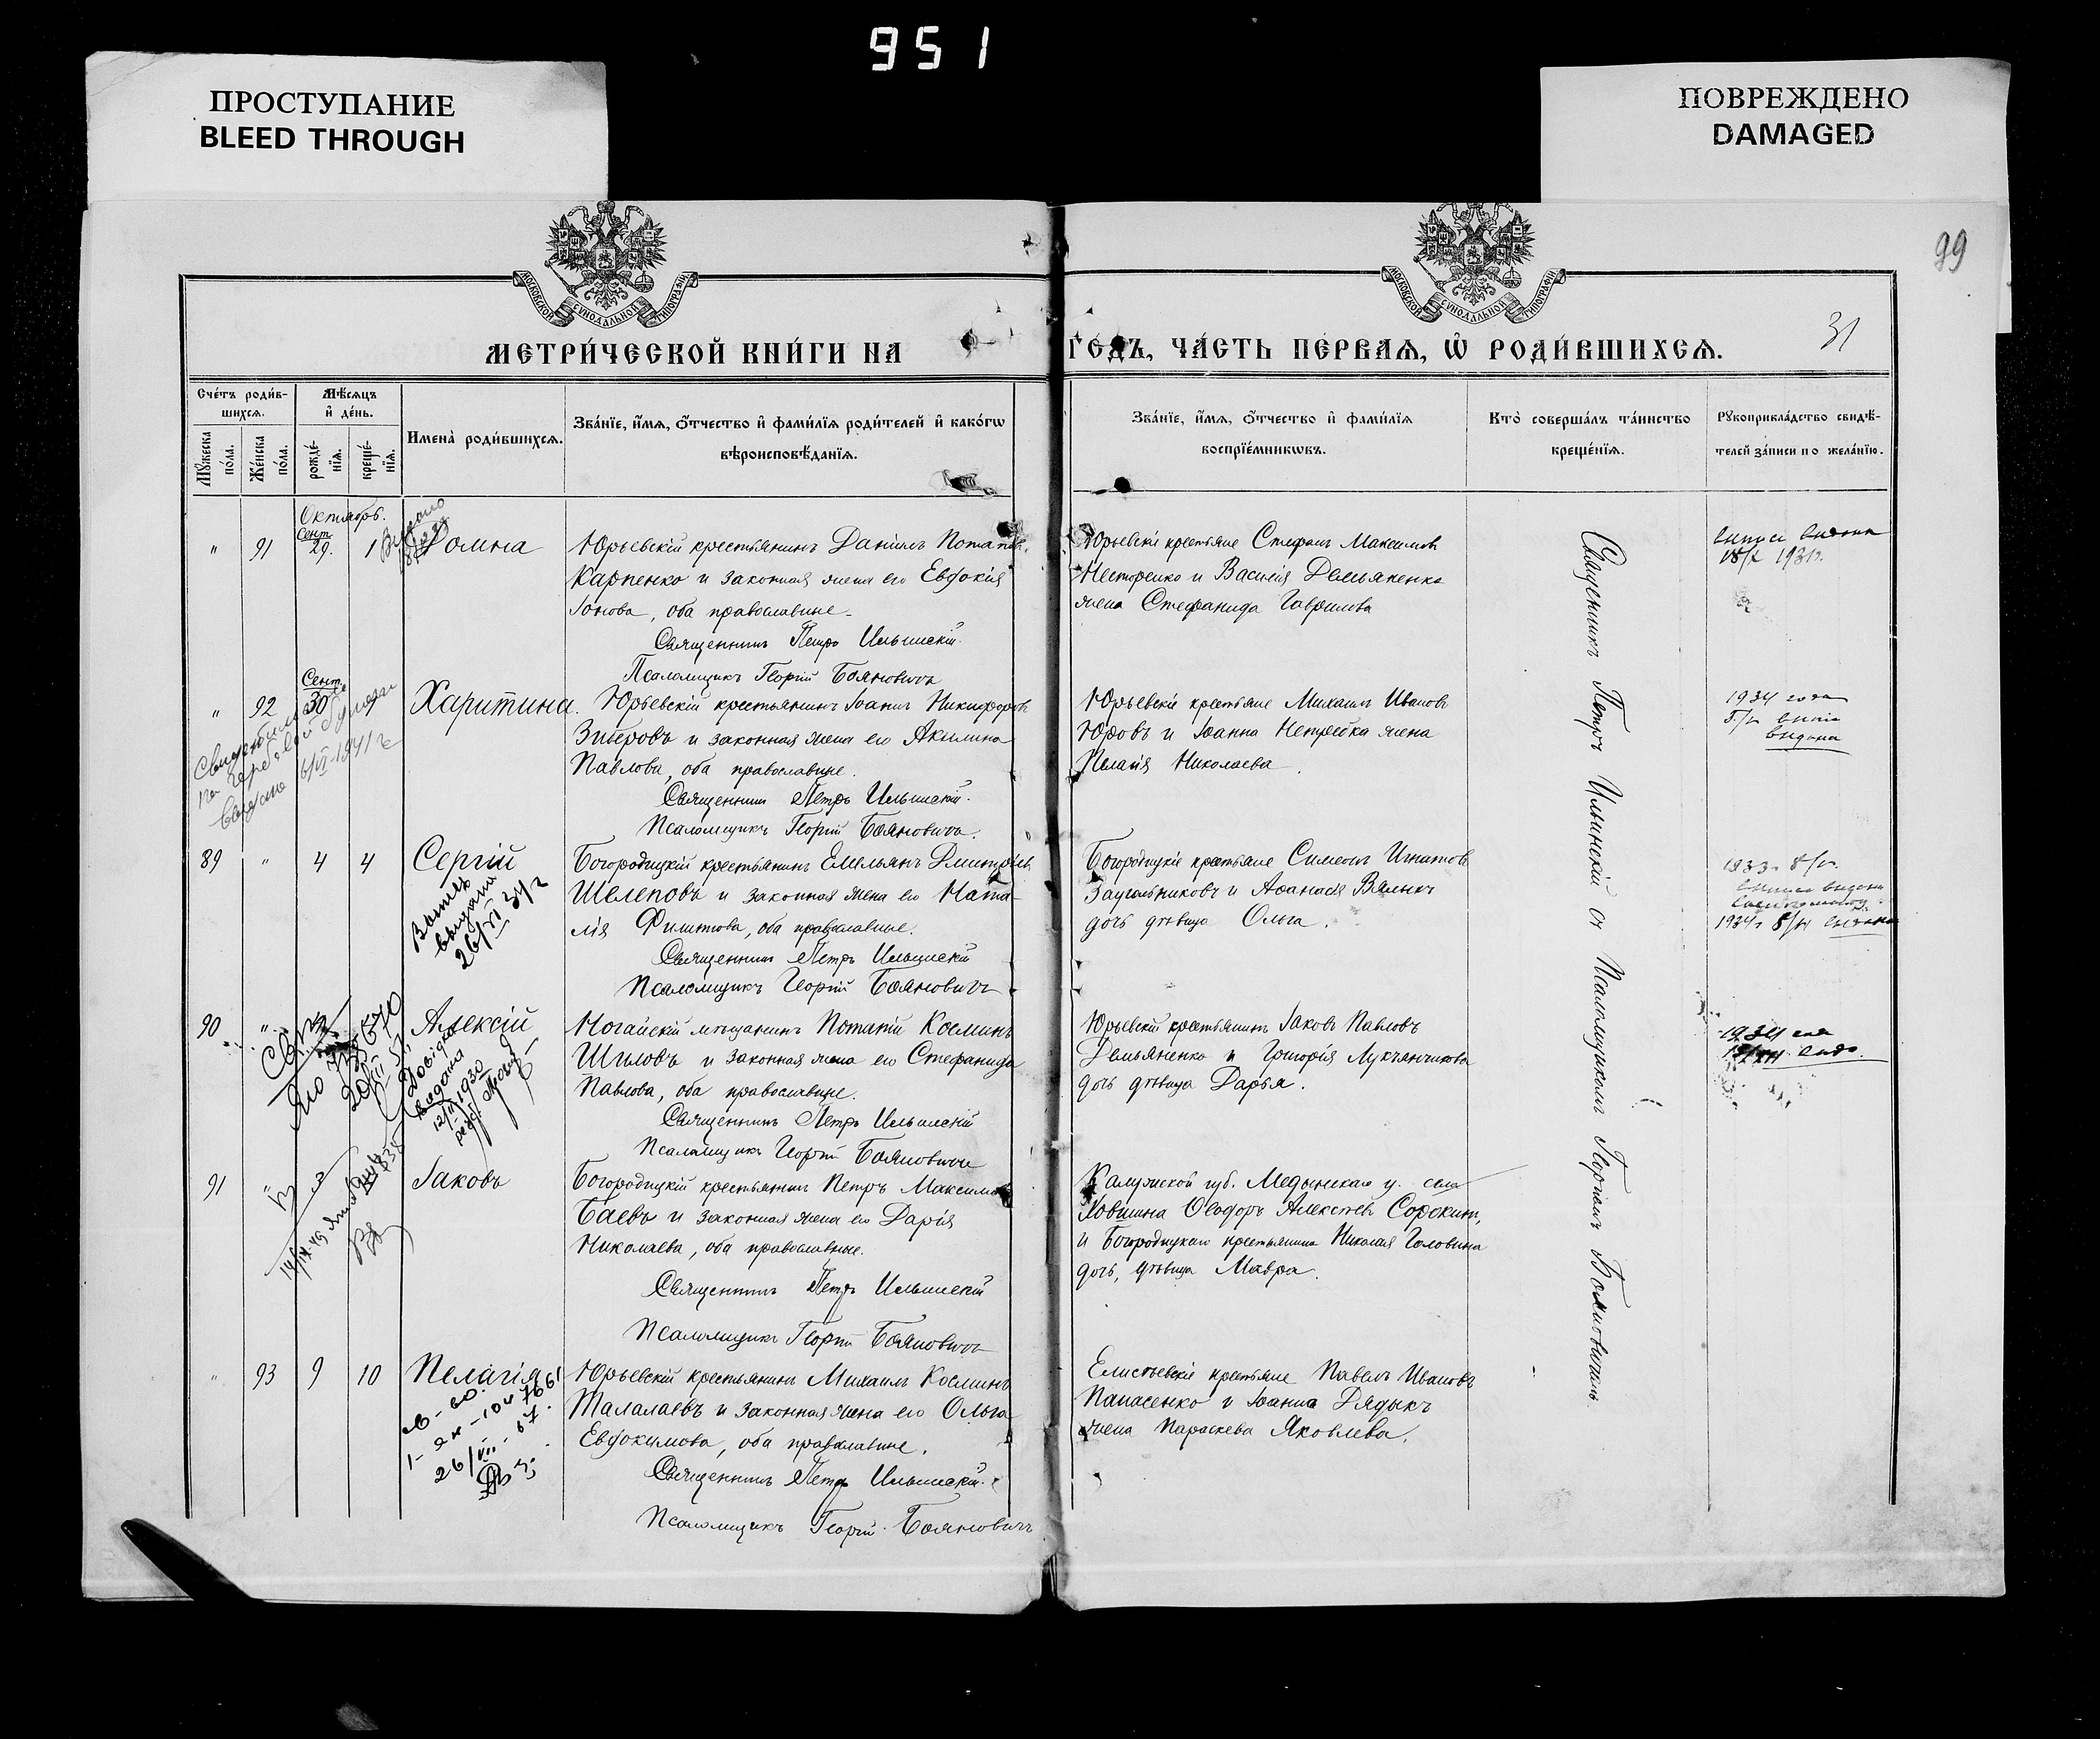 951
ПРОСТУПАНИЕ
BLEED THROUGH
ПОВРЕЖДЕНО
DAMAGED
99
31
МОСКОВСКОЙ СѴНОДАЛЬНОЙ ТИПОГРАФІИ
МОСКОВСКОЙ СѴНОДАЛЬНОЙ ТИПОГРАФІИ
МЕТРИ́ЧЕСКОЙ КНИ́ГИ НА ГО́ДЪ, ЧА́СТЬ ПЕ́РВАѦ, Ѡ҆ РОДИ́ВШИХСѦ.
Сче́тъ роди́вшихсѧ.
Мꙋ́жеска по́ла.
Же́нска по́ла.
Мѣ́сѧцъ и҆ де́нь.
рожде́нїѧ.
креще́нїѧ.
Имена̀ роди́вшихсѧ.
Зва́нїе, и҆́мѧ, ѻ҆́тчество и҆ фами́лїѧ роди́телей и҆ како́гѡ
вѣроисповѣ́данїѧ.
Зва́нїе, и҆́мѧ, ѻ҆́тчество и҆ фами́лїѧ
воспрїе́мникѡвъ.
Кто̀ соверша́лъ та́инство
креще́нїѧ.
Рꙋкоприкла́дство свидѣ́-
телей за́писи по жела́нїю.
Октябрь.
" 91 Сент. 29. 1 Домна
Юрьевскій крестьянинъ Даніилъ Потапов.
Карпенко и законная жена его Евдокія
Іонова, оба православные.
Священникъ Петръ Ильинскій.
Псаломщикъ Георгій Бояновичъ
Юрьевскіе крестьяне Стефанъ Максимовъ
Несторенко и Василія Демьяненко
жена Стефанида Гаврилова
выписи выдана
1931г.
" 92 Сент. 30 Харитина.
Юрьевскій крестьянинъ Іоаннъ Никифоровъ
Звѣровъ и законная жена его Акилина
Павлова, оба православные.
Священникъ Петръ Ильинскій.
Псаломщикъ Георгій Бояновичъ.
Юрьевскіе крестьяне Михаилъ Ивановъ
Юровъ и Іоанна Непрейка жена
Пелагія Николаева.
1934 года
выдана
выдано 1941г
89 " 4 4 Сергій
Богородицкій крестьянинъ Емельянъ Дмитріевъ
Шелеповъ и законная жена его Ната-
лія Филиппова, оба православные.
Священникъ Петръ Ильинскій
Псаломщикъ Георгій Бояновичъ
Богородицкіе крестьяне Симеонъ Игнатовъ
Заугольниковъ и Афанасія Вялыхъ
дочь дѣвица Ольга.
выдана
26/XI 34 г
90 " Алексій
Ногайскій мѣщанинъ Потапій Косминъ
Шиловъ и законная жена его Стефанида
Павлова, оба православные.
Священникъ Петръ Ильинскій
Псаломщикъ Георгій Бояновичъ
Юрьевскіе крестьянинъ Іаковъ Павловъ
Демьяненко и Григорія Лукьянчикова
дочь дѣвица Дарья.
Довідка
видана
1930
1934 года
91 " Іаковъ
Богородицкій крестьянинъ Петръ Максимовъ
Баевъ и законная жена его Дарія
Николаева, оба православные.
Священникъ Петръ Ильинскій
Псаломщикъ Георгій Бояновичъ
Калужской губ. Медынскаго у. села
Ѳеодоръ Алексѣевъ Сорокинъ,
и Богородицкаго крестьянина Николая Головина
дочь, дѣвица Мавра.
" 93 9 10 Пелагія
Юрьевскій крестьянинъ Михаилъ Косминъ
Талалаевъ и законная жена его Ольга
Евдокимова, оба православные.
Священникъ Петръ Ильинскій.
Псаломщикъ Георгій Бояновичъ
Елисѣевскіе крестьяне Павелъ Ивановъ
Панасенко и Іоанна Дядыкъ
жена Параскева Яковлева.
26/VII-67.
Священникъ Петръ Ильинскій съ Псаломщикомъ Георгіемъ Бояновичемъ